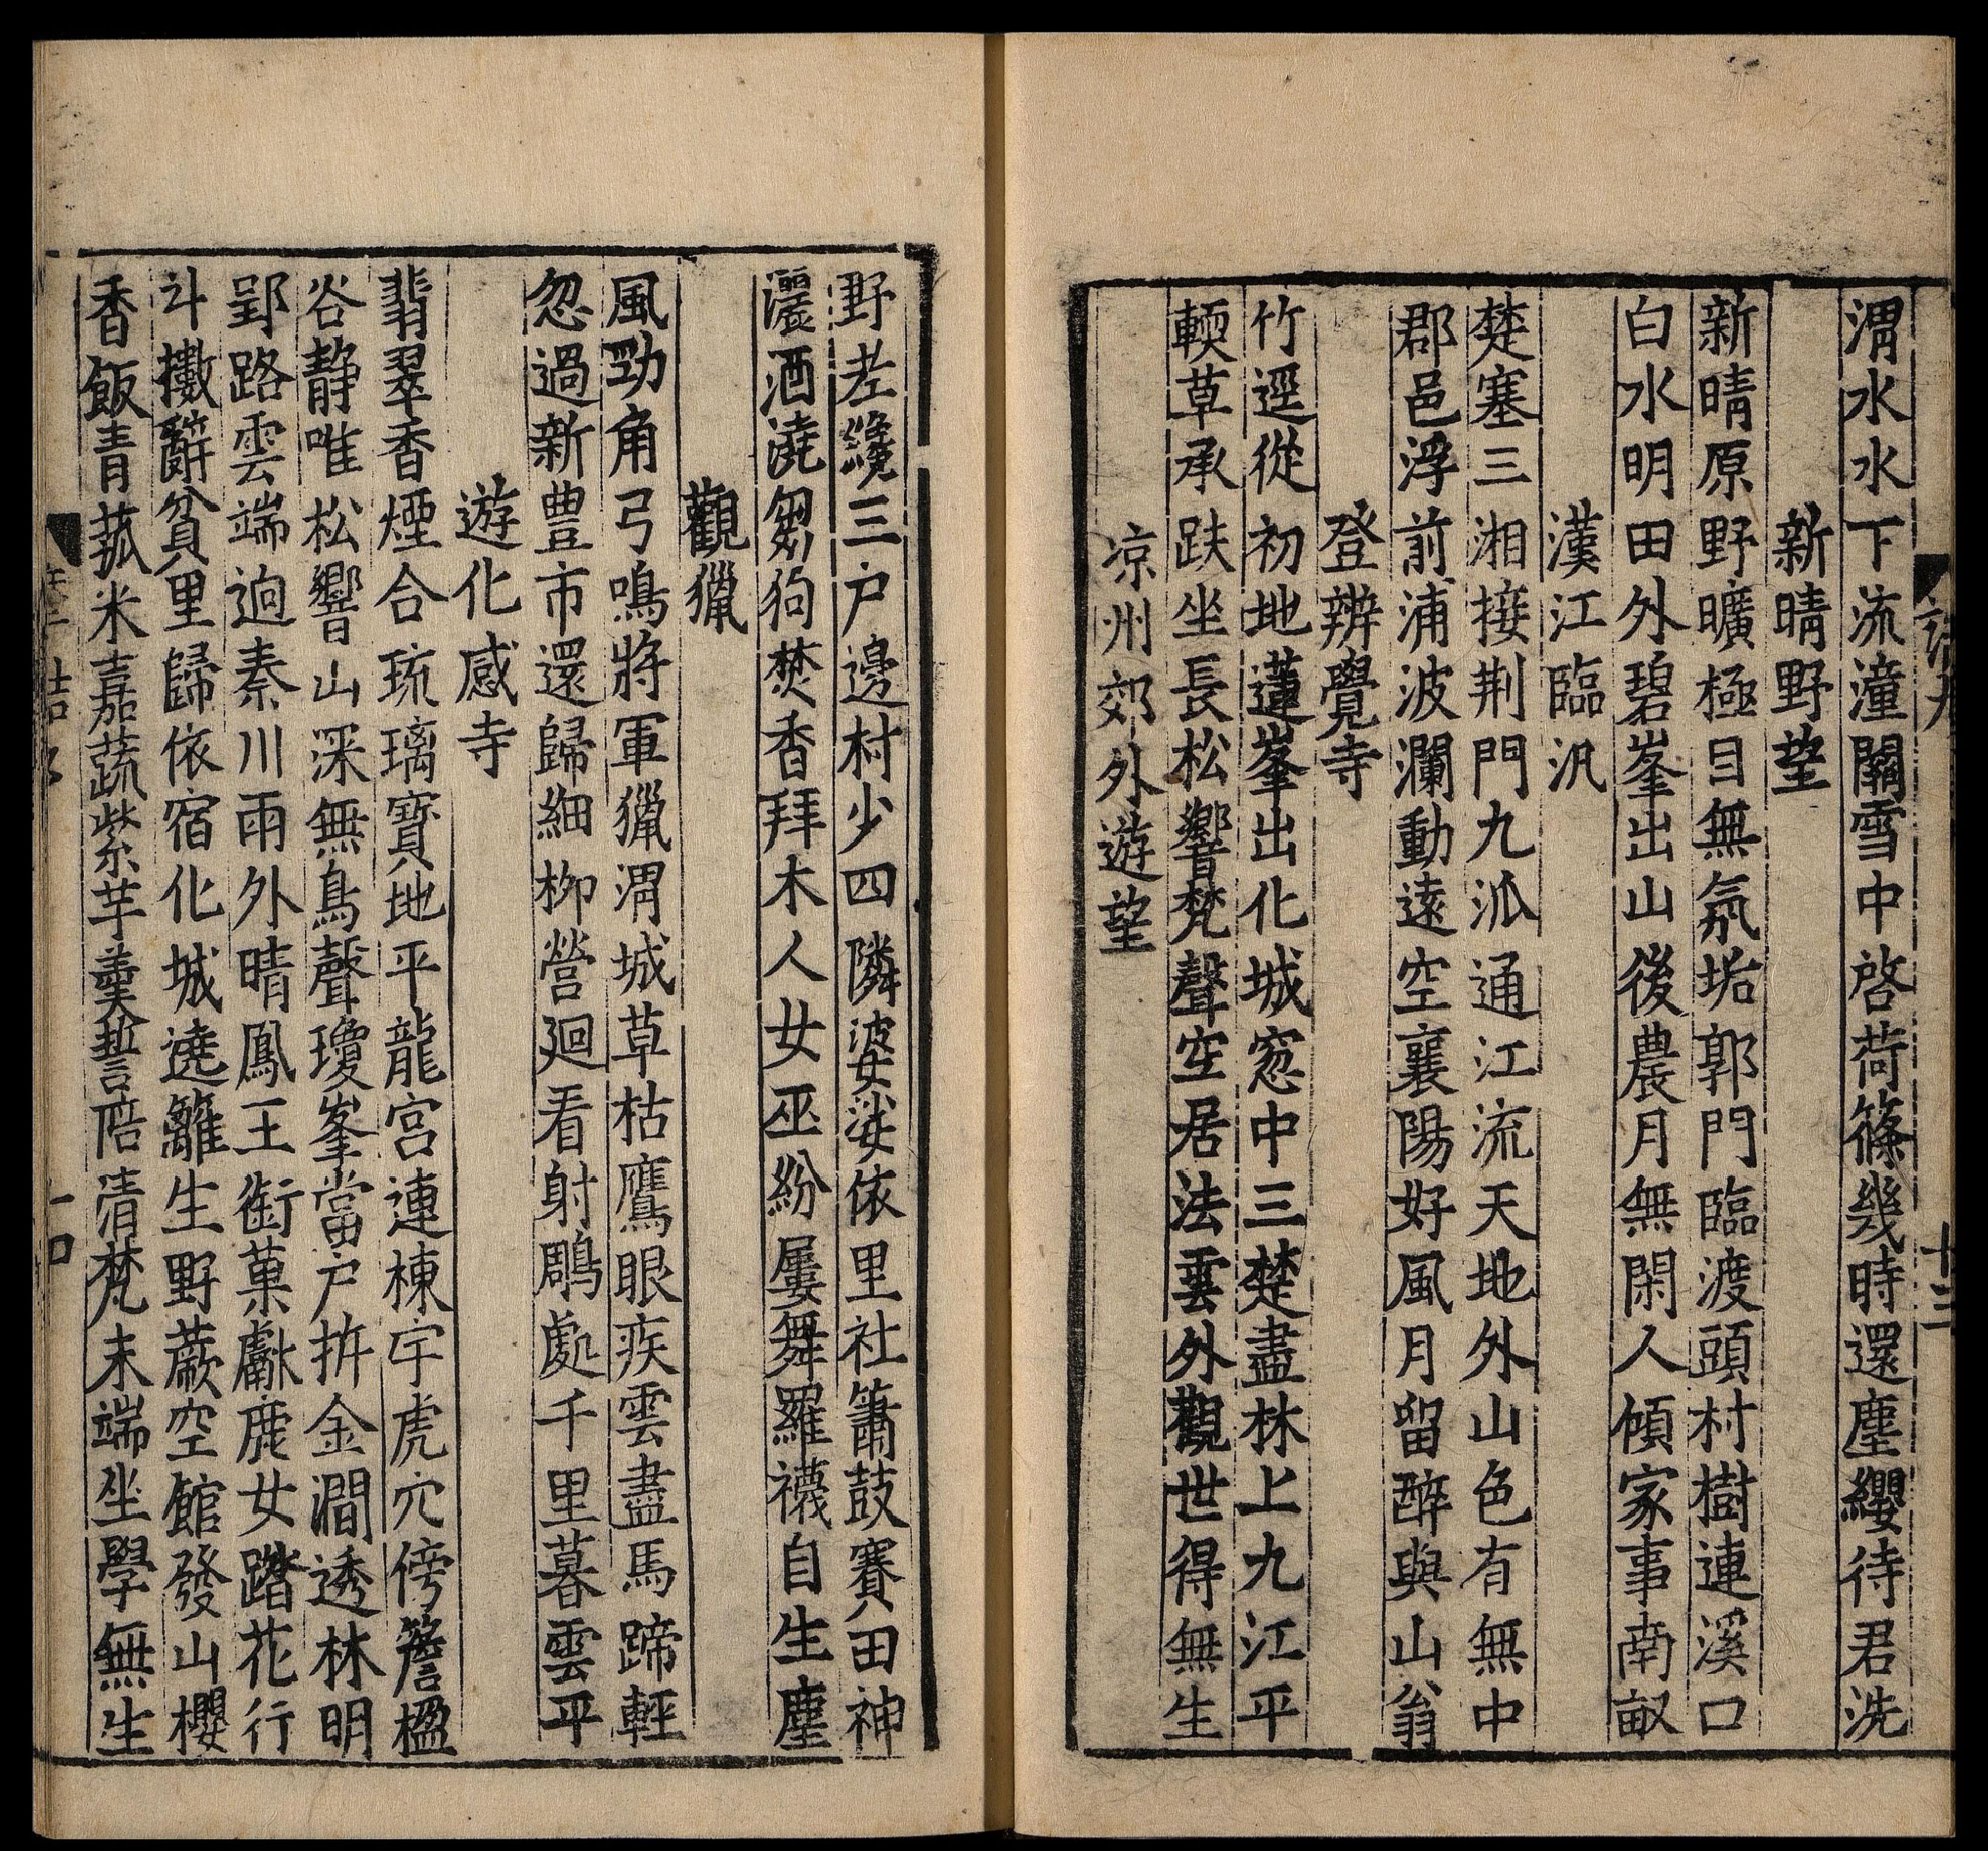 渭水水下流潼關雪中啓荷篠幾時還塵纓待君洗
新晴野望
新晴原野曠極目無氛垢郭門臨渡頭村樹連溪口
白水明田外碧峯出山後農月無閑人傾家事南畝
漢江臨汎
楚塞三湘接荆門九派通江流天地外山色有無中
郡邑浮前浦波瀾動遠空襄陽好風月留醉與山翁
登辨覺寺
竹逕從初地蓮峯出化城窓中三楚盡林上九江平
輭草承趺坐長松響梵聲空居法雲外觀世得無生
凉州郊外遊望
野老纔三户邊村少四隣婆娑依里社簫鼓賽田神
灑酒澆芻狗焚香拜木人女巫紛屢舞羅襪自生塵
觀獵
風勁角弓鳴將軍獵渭城草枯鷹眼疾雲盡馬蹄輕
忽過新豊市還歸細柳營廻看射鵰處千里暮雲平
遊化感寺
翡翠香煙合琉璃寳地平龍宫連棟宇虎穴傍簷楹
谷静唯松響山深無鳥聲瓊峯當户拆金澗透林明
郢路雲端逈秦川雨外晴鳳王銜菓獻鹿女踏花行
斗擻辭貧里歸依宿化城遶籬生野蕨空館發山櫻
香飯青菰米嘉蔬紫芋羹誓陪清梵末端坐學無生
十三